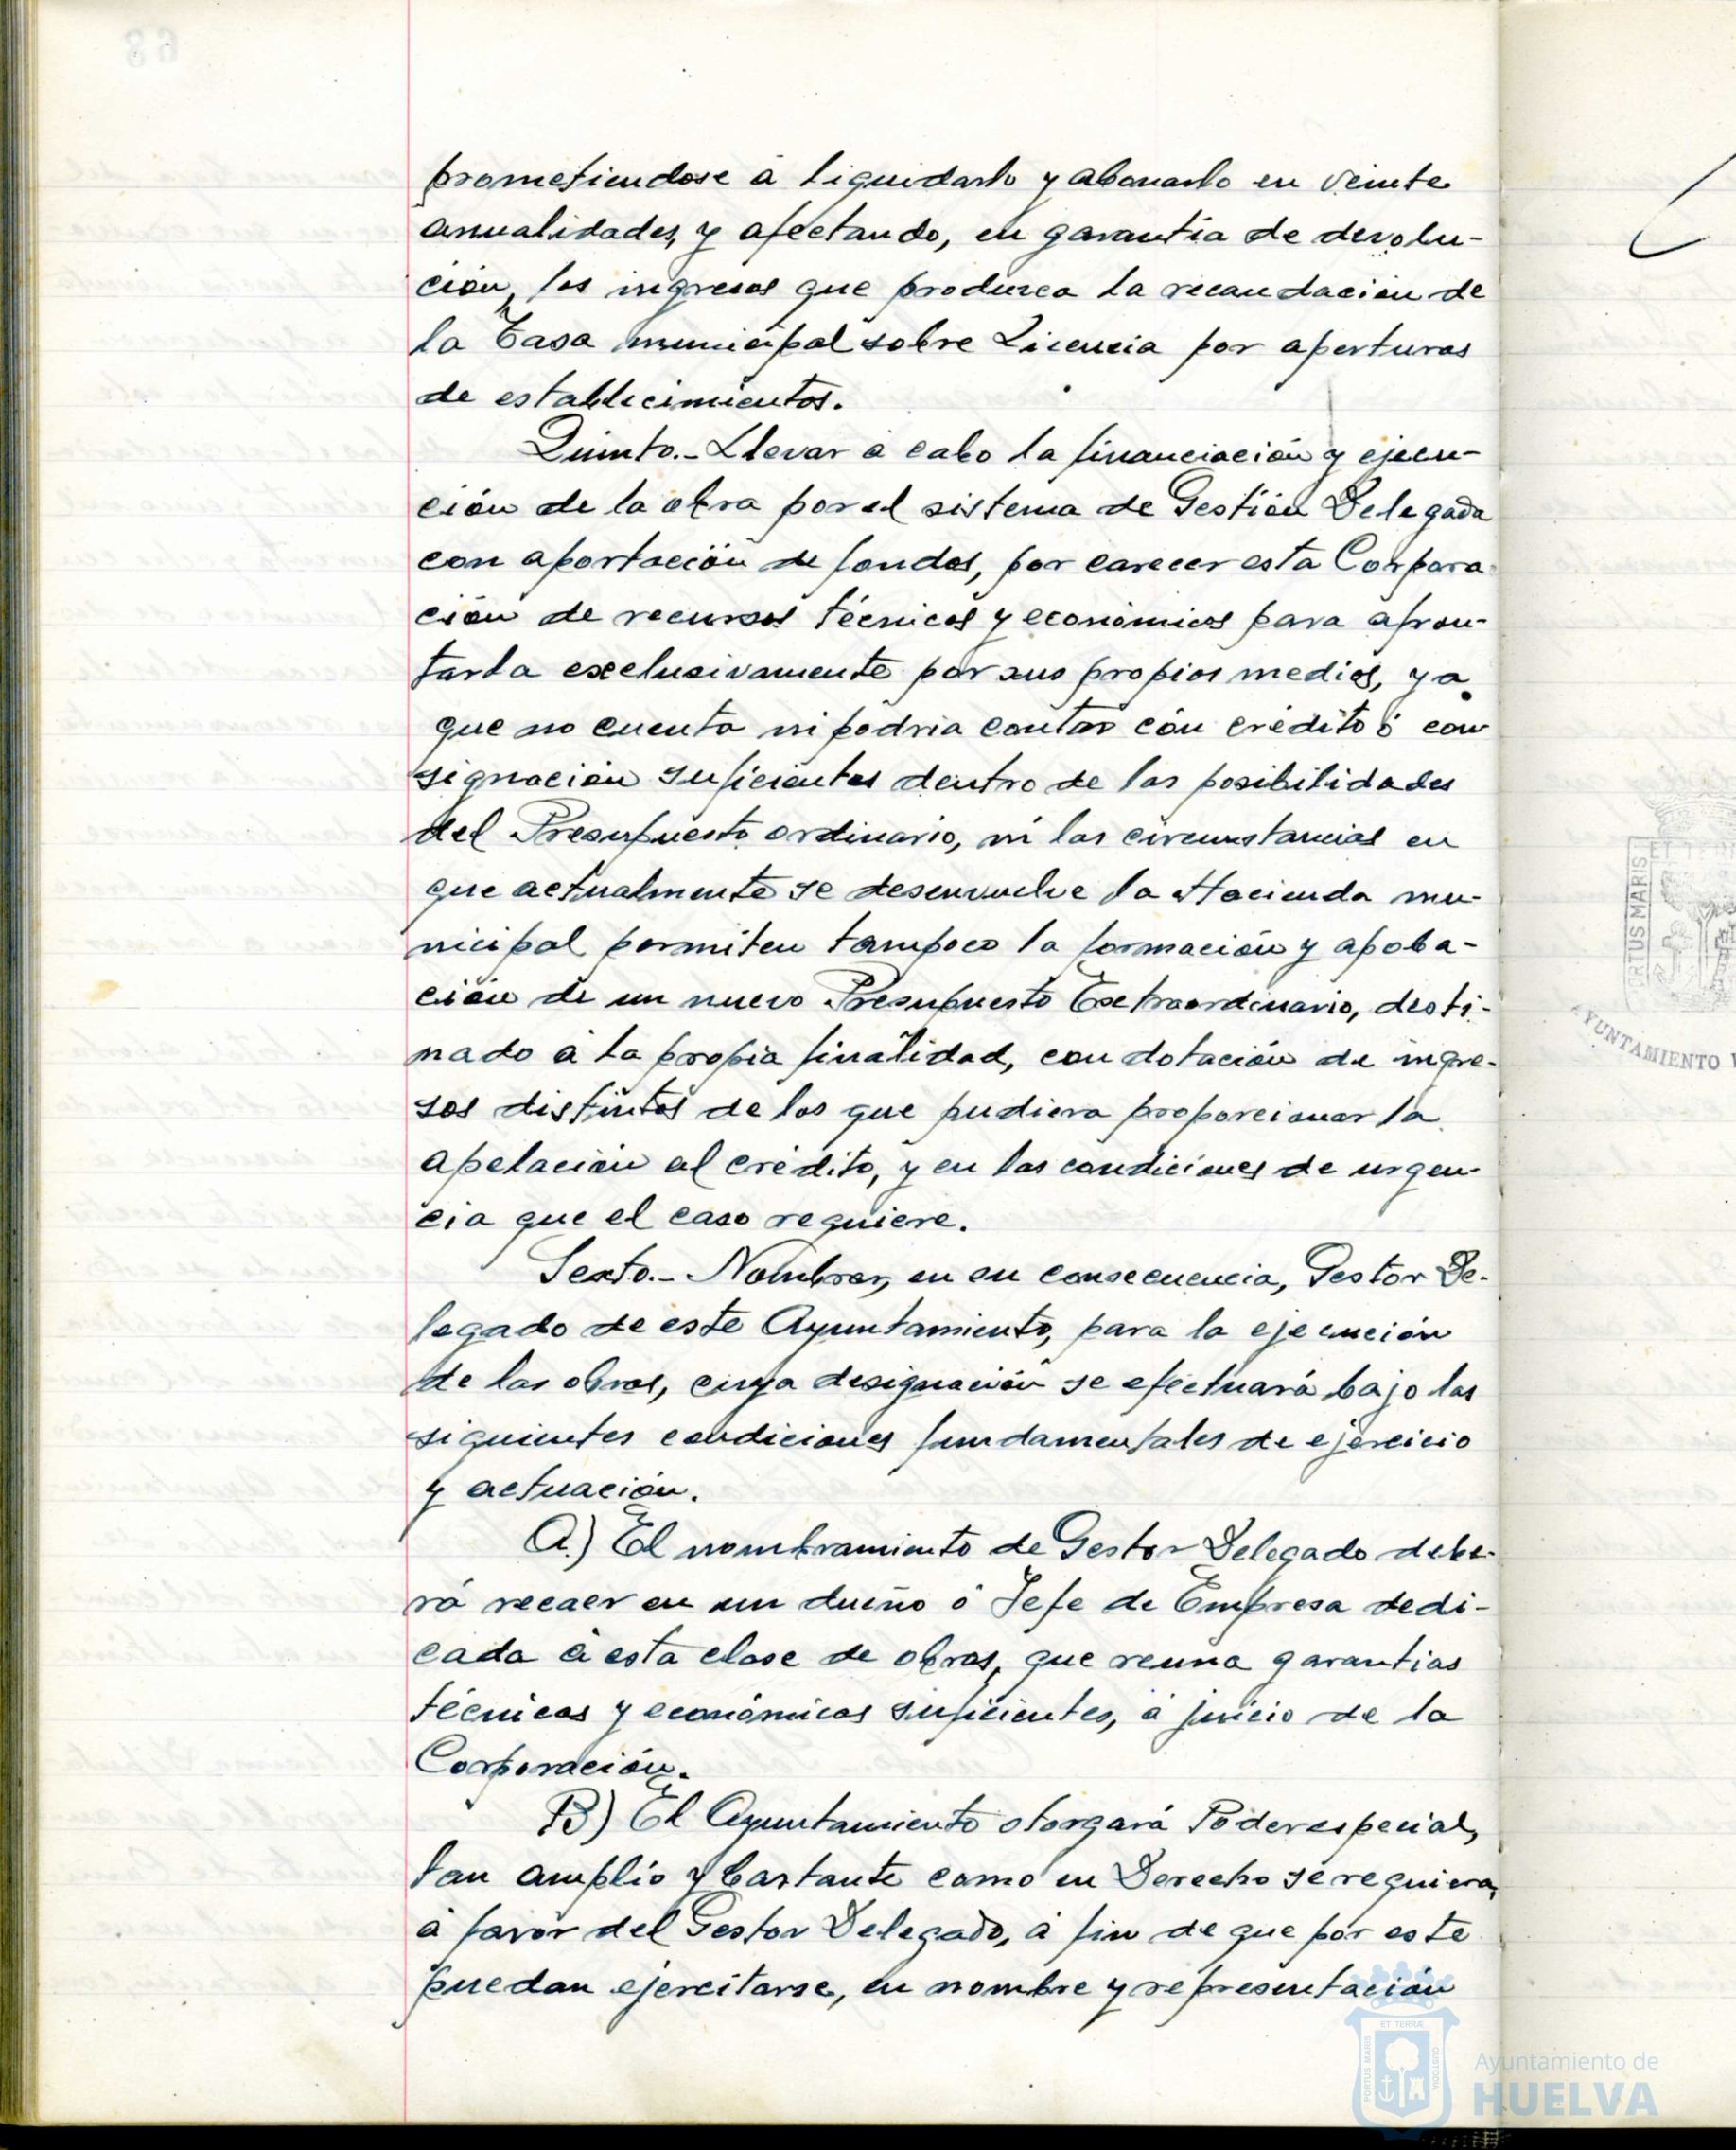 prometiendose á liquidarlo y abonarlo en veinte
anualidades, y afectando, en garantía de devolu-
ción, los ingresos que produzca la recaudación de
la Tasa municipal sobre Licencia por aperturas
de establecimientos.
Quinto.- Llevar á cabo la financiación y ejecu-
ción de la obra por el sistema de Gestión Delegada
con aportación de fondos, por carecer esta Corpora
ción de recursos técnicos y económicos para afron-
tarla exclusivamente por sus propios medios, ya
que no cuenta ni podria contar con crédito ó con
signación suficientes dentro de las posibilidades
del Presupuesto ordinario, ni las circunstancias en
que actualmente se desenvuelve la Hacienda mu-
nicipal permiten tampoco la formación y apoba-
ción de un nuevo Presupuesto Extraordinario, desti-
nado á la propia finalidad, con dotación de ingre-
sos distintos de los que pudiera proporcionar la
apelación al crédito, y en las condiciones de urgen-
cia que el caso requiere.
Sexto.- Nombrar, en su consecuencia, Gestor De-
legado de este Ayuntamiento, para la ejecución
de las obras, cuya designación se efectuará bajo las
siguientes condiciones fundamentales de ejercicio
y actuación.
A.) El nombramiento de Gestor Delegado debe-
rá recaer en un dueño ó Jefe de Empresa dedi-
cada á esta clase de obras, que reuna garantias
técnicas y económicas suficientes, á juicio de la
Corporación.
B) El Ayuntamiento otorgará Poder especial,
tan amplio y bastante como en Derecho se requiera,
á favor del Gestor Delegado, á fin de que por este
puedan ejercitarse, en nombre y representación
PORTUS MARIS
ET TERRÆ
CUSTODIA
Ayuntamiento de
HUELVA
ORTUS MARIS
ET T
AYUNTAMIENTO